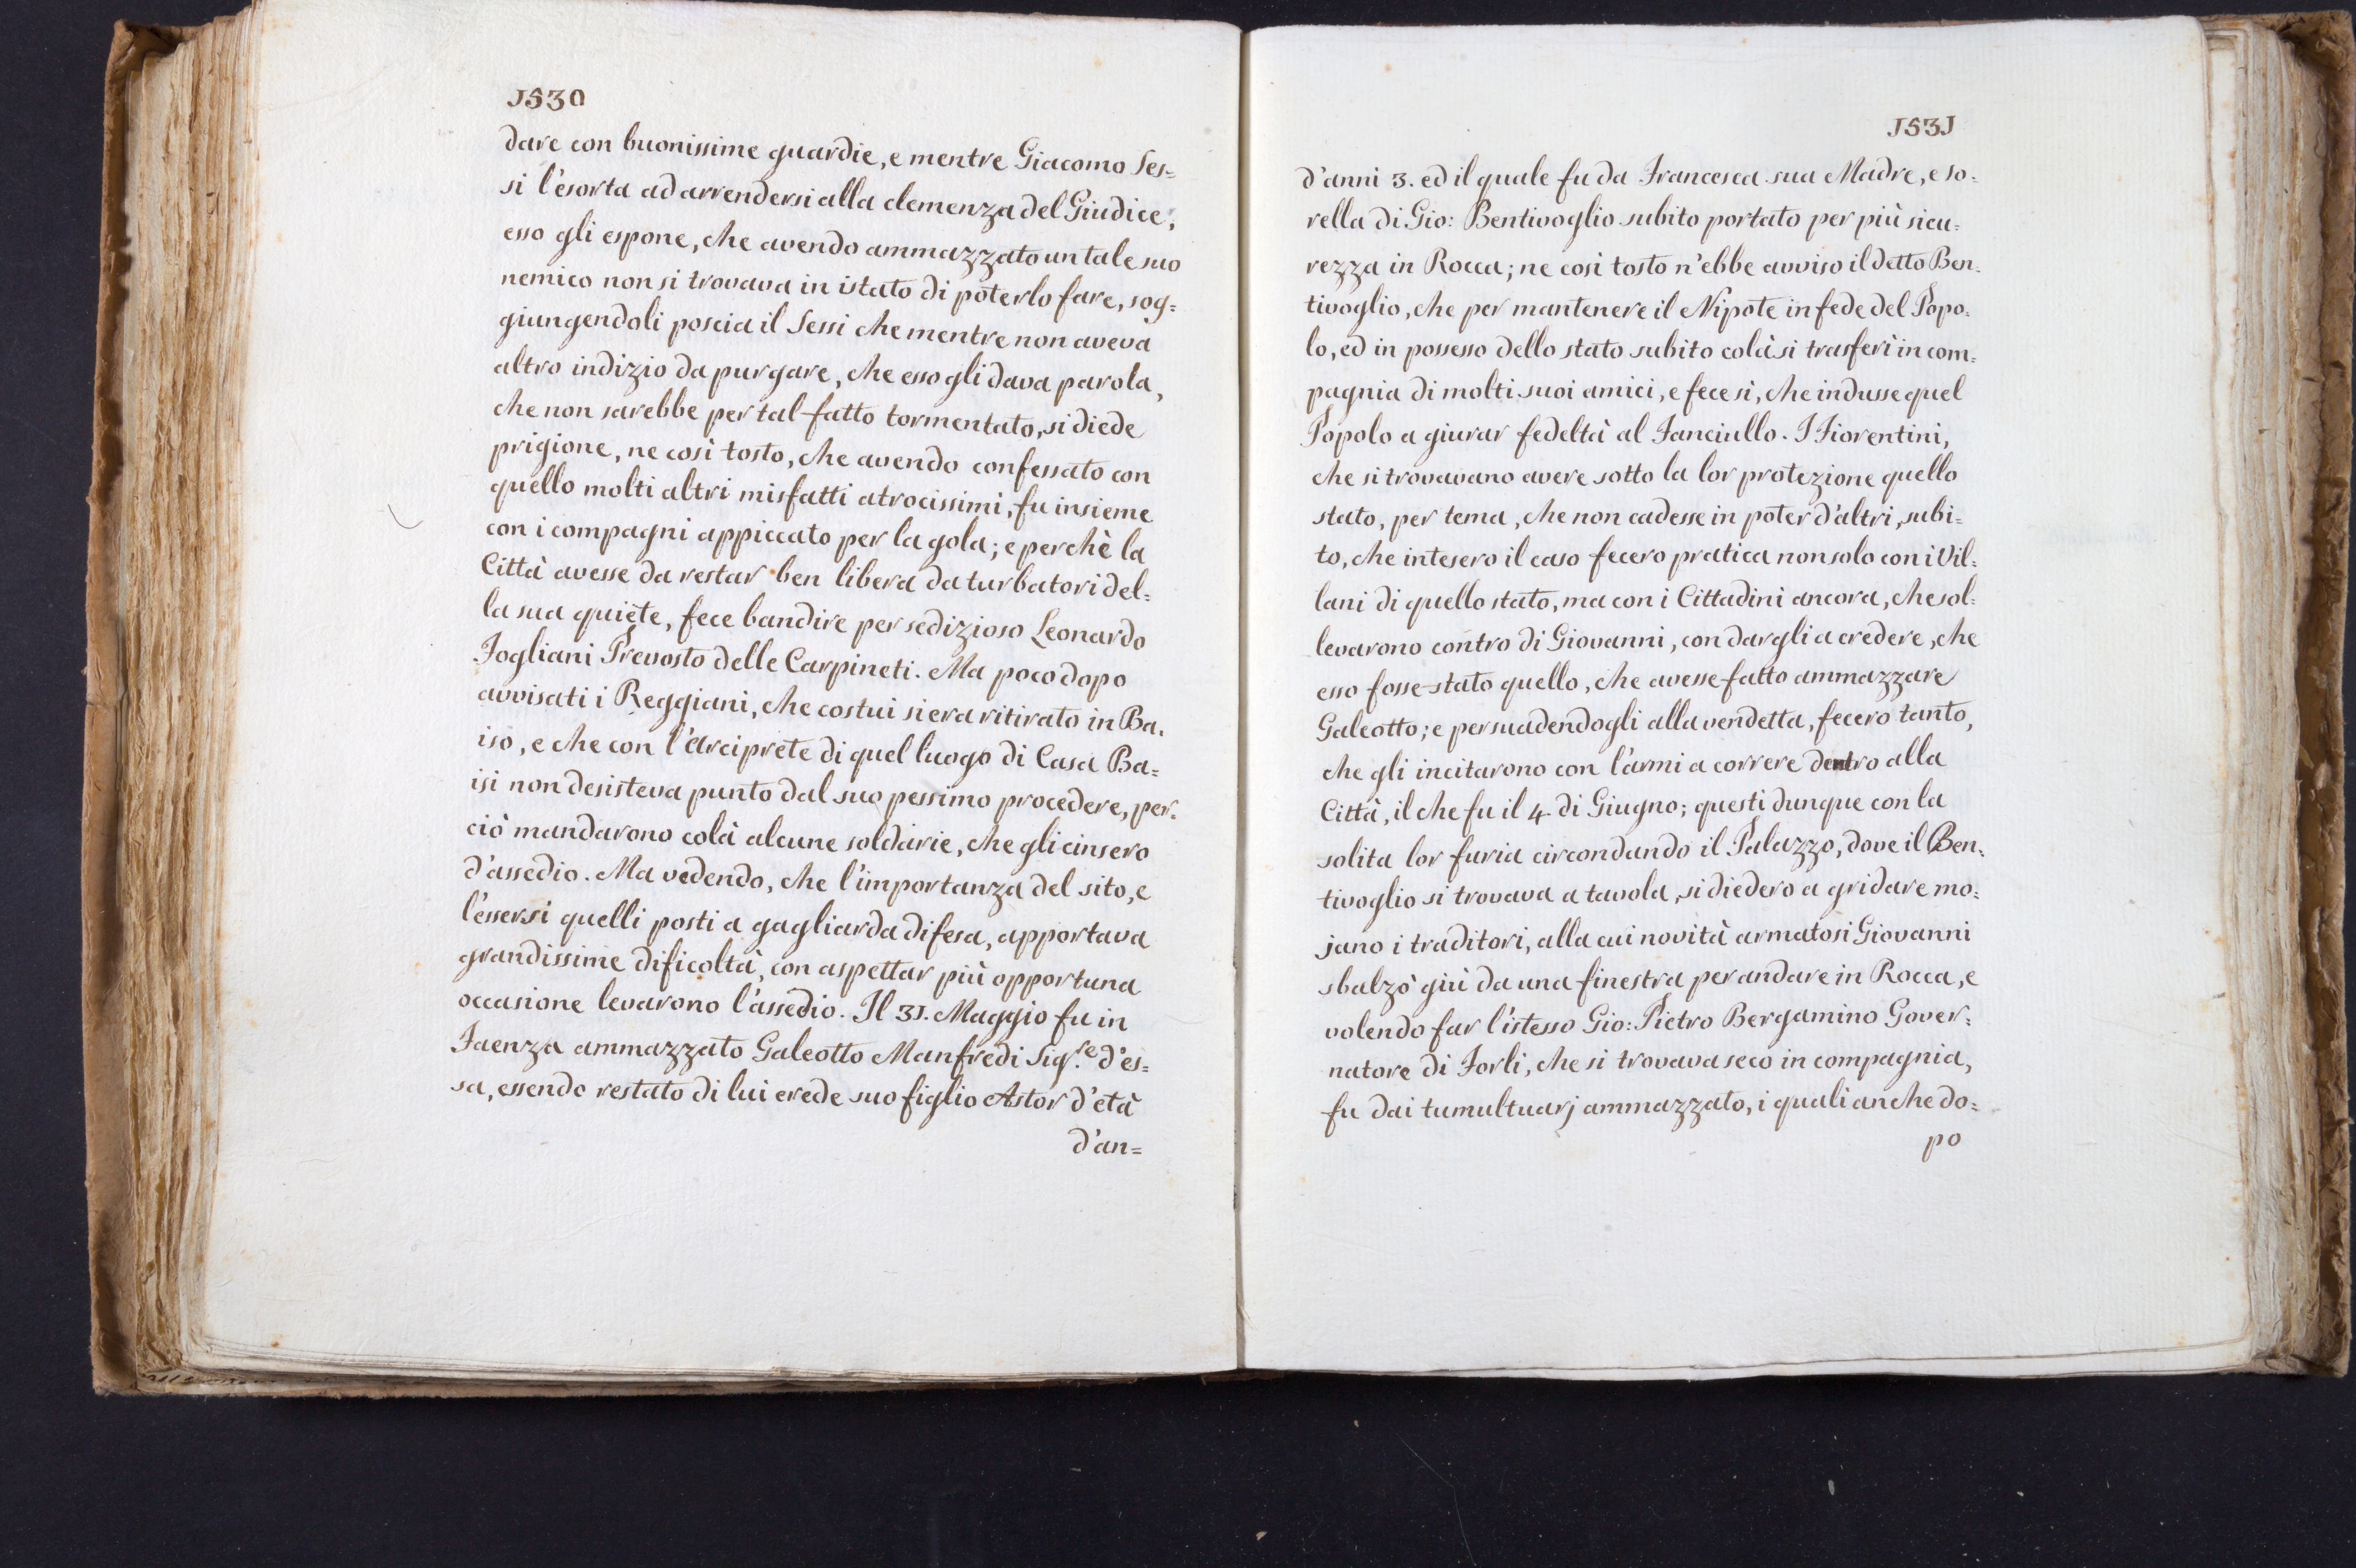 1530
dare con buonissime guardie, e mentre Giacomo Ses=
si l'esorta ad arrendersi alla clemenza del Giudice;
esso gli espone, che avendo ammazzato un tale suo
nemico non si trovava in istato di poterlo fare, sog=
giungendoli poscia il Sessi che mentre non aveva
altro indizio da purgare, che esso gli dava parola,
che non sarebbe per tal fatto tormentato, si diede
prigione, ne così tosto, che avendo confessato con
quello molti altri misfatti atrocissimi, fu insieme
con i compagni appiccato per la gola; e perchè la
Città avesse da restar ben libera da turbatori del=
la sua quiete, fece bandire per sedizioso Leonardo
Fogliani Prevosto delle Carpineti. Ma poco dopo
avvisati i Reggiani, che costui si era ritirato in Ba=
iso, e che con l'Arciprete di quel luogo di Casa Ba=
isi non desisteva punto dal suo pessimo procedere, per=
ciò mandarono colà alcune soldarie, che gli cinsero
d'assedio. Ma vedendo, che l'importanza del sito, e
l'essersi quelli posti a gagliarda difesa, apportava
grandissime dificoltà, con aspettar più opportuna
occasione levarono l'assedio. Il 31. Maggio fu in
Faenza ammazzato Galeotto Manfredi Sig.re d'es=
sa, essendo restato di lui erede suo figlio Astor d'età
d'an=
1531
d'anni 3. ed il quale fu da Francesca sua Madre, e so=
rella di Gio: Bentivoglio subito portato per più sicu=
rezza in Rocca; ne così tosto n'ebbe avviso il detto Ben=
tivoglio, che per mantenere il Nipote in fede del Popo=
lo, ed in possesso dello stato subito colà si trasferì in com=
pagnia di molti suoi amici, e fece sì, che indusse quel
Popolo a giurar fedeltà al Fanciullo. I Fiorentini,
che si trovavano avere sotto la lor protezione quello
stato, per tema, che non cadesse in poter d'altri, subi=
to, che intesero il caso fecero pratica non solo con i Vil=
lani di quello stato, ma con i Cittadini ancora, che sol=
levarono contro di Giovanni, con dargli a credere, che
esso fosse stato quello, che avesse fatto ammazzare
Galeotto; e persuadendogli alla vendetta, fecero tanto,
che gli incitarono con l'armi a correre dentro alla
Città, il che fu il 4. di Giugno; questi dunque con la
solita lor furia circondando il Palazzo, dove il Ben=
tivoglio si trovava a tavola, si diedero a gridare mo=
jano i traditori, alla cui novità armatosi Giovanni
sbalzò giù da una finestra per andare in Rocca, e
volendo far l'istesso Gio: Pietro Bergamino Gover=
natore di Forlì, che si trovava seco in compagnia,
fu dai tumultuarj ammazzato, i quali anche do=
po